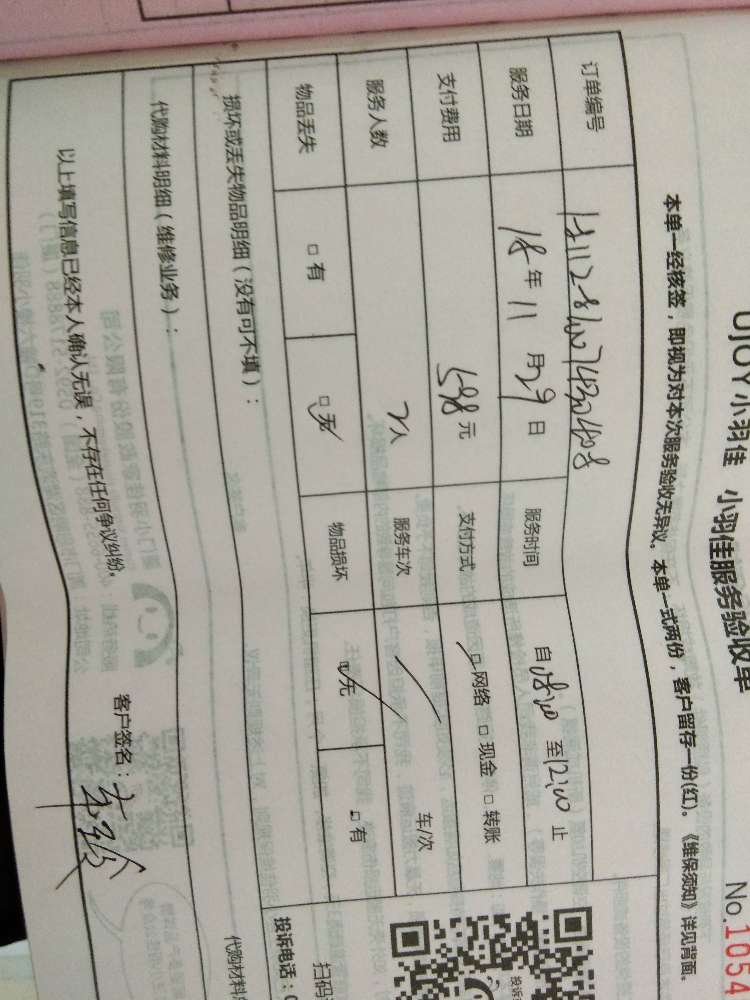 UJOY小羽佳 小羽佳服务验收单
No.1054
本单一经核签，即视为对本次服务验收无异议。本单一式两份，客户留存一份(红)。《维保须知》详见背面。
订单编号
服务日期 18年11月29日 服务时间 自08:00至12:00止
支付费用 598元 支付方式 □网络 □现金 □转账
服务人数 2人 服务车次 车/次
物品丢失 □有 □无 物品损坏 □无 □有
损坏或丢失物品明细（没有可不填）：
代购材料明细（维修业务）：
代购材料
扫码
投诉电话：
以上填写信息已经本人确认无误，不存在任何争议纠纷。
客户签名：